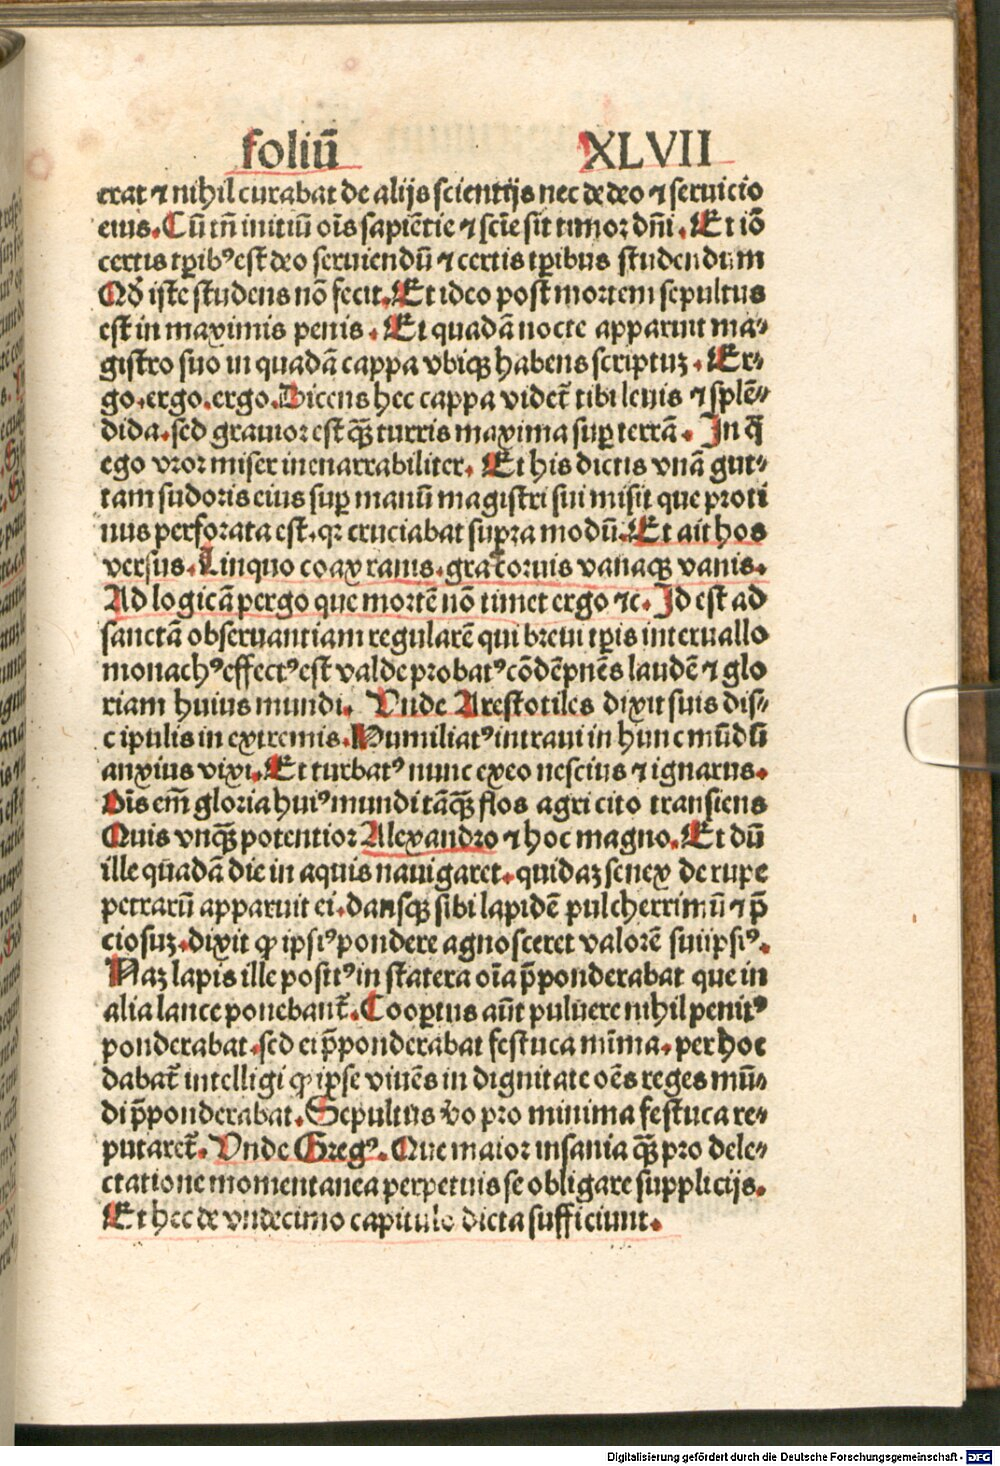 foliū XLVII
erat ⁊ nihil curabat de alijs scientijs nec de deo ⁊ seruicio
eius. Cū tñ initiū oīs sapiētie ⁊ scīe sit timor dñi. Et iō
certis tꝑibꝰ est deo seruiendū ⁊ certis tꝑibus studendum
Qd iste studens nō fecit. Et ideo post mortem sepultus
est in maximis penis. Et quadā nocte apparuit ma⸗
gistro suo in quadā cappa vbiqꝫ habens scriptuꝫ. Er⸗
go. ergo. ergo. Dicens hec cappa videt̄ tibi leuis ⁊ splē⸗
dida. sed grauior est qꝫ̄ turris maxima suꝑ terrā. In q̄
ego vror miser inenarrabiliter. Et his dictis vnā gut⸗
tam sudoris eius suꝑ manū magistri sui misit que proti
nus perforata est. qꝛ cruciabat supra modū. Et ait hos
versus. Linquo coax ranis. cra coruis vanaqꝫ vanis.
Ad logicā pergo que mortē nō timet ergo ⁊c. Id est ad
sanctā obseruantiam regularē qui breui tꝑis interuallo
monachꝰ effectꝰ est valde probatꝰ cōdēpnēs laudē ⁊ glo
riam huius mundi. Vnde Arestotiles dixit suis dis⸗
cipulis in extremis. Humiliatꝰ intraui in hunc mūdū
anxius vixi. Et turbatꝰ nunc exeo nescius ⁊ ignarus.
Oīs em̄ gloria huiꝰ mundi tāqꝫ̄ flos agri cito transiens
Quis vnqꝫ̄ potentior Alexandro ⁊ hoc magno. Et dū
ille quadā die in aquis nauigaret. quidaꝫ senex de rupe
petrarū apparuit ei. dansqꝫ sibi lapidē pulcherrimū ⁊ p̄
ciosuꝫ. dixit ꝙ ipsiꝰ pondere agnosceret valorē sui ipsiꝰ.
Naꝫ lapis ille positꝰ in statera oīa p̄ponderabat que in
alia lance ponebant̄. Cooꝑtus aūt puluere nihil penitꝰ
ponderabat. sed ei p̄ponderabat festuca mīma. per hoc
dabat̄ intelligi ꝙ ipse viuēs in dignitate oēs reges mū⸗
di p̄ponderabat. Sepultus v̄o pro minima festuca re⸗
putaret̄. Vnde Gregꝰ. Que maior insania qꝫ̄ pro dele⸗
ctatione momentanea perpetuis se obligare supplicijs.
Et hec de vndecimo capitulo dicta sufficiunt.
Digitalisierung gefördert durch die Deutsche Forschungsgemeinschaft - DFG